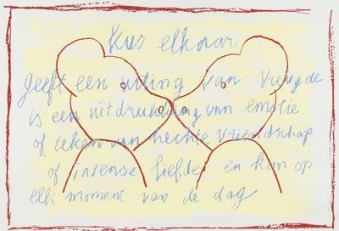 Kus elkaar
Geeft een uiting van vreugde
is een uitdrukking van emotie
of teken van hechte vriendschap
of intense liefde en kan op
elk moment van de dag